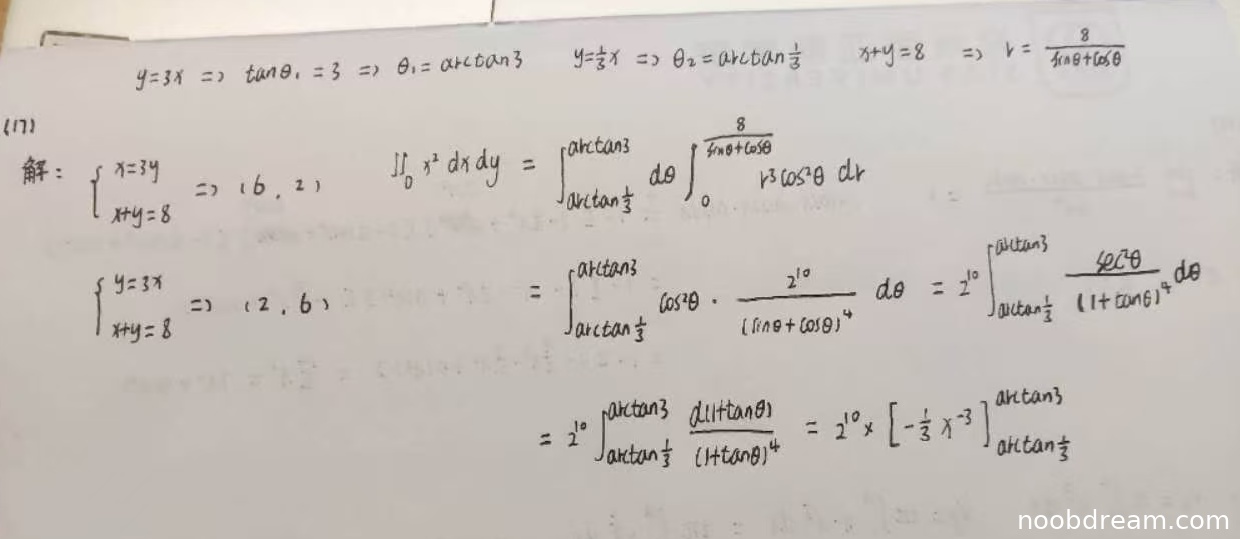 y=3x => tanθ₁=3 => θ₁=arctan3 y=⅓x => θ₂=arctan⅓ x+y=8 => r=8/(sinθ+cosθ)
(17)
解: { x=3y, x+y=8 => (6, 2) ∬_D x² dxdy = ∫_{arctan⅓}^{arctan3} dθ ∫_0^{8/(sinθ+cosθ)} r³cos²θ dr
{ y=3x, x+y=8 => (2, 6) = ∫_{arctan⅓}^{arctan3} cos²θ · 2¹⁰/(sinθ+cosθ)⁴ dθ = 2¹⁰ ∫_{arctan⅓}^{arctan3} sec²θ/(1+tanθ)⁴ dθ
= 2¹⁰ ∫_{arctan⅓}^{arctan3} d(1+tanθ)/(1+tanθ)⁴ = 2¹⁰ × [-⅓ x⁻³]_{arctan⅓}^{arctan3}
noobdream.com